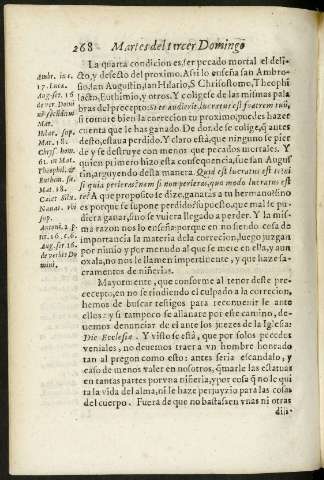 268 Martes del tercer Domingo
La quarta condicion es, ser pecado mortal el deli-
cto, y defecto del proximo. Assi lo enseña san Ambro-
sio, san Augustin, san Hilario, S. Chrisostomo, Theophi
lacto, Euthimio, y otros. Y colige se de las mismas pala
bras del precepto: Si te audierit lucratus est fratrem tuũ,
si tomare bien la correction tu proximo, puedes hazer
cuenta que le has ganado. De donde se colige, q̃ antes
desto, estaua perdido. Y claro está, que ninguno se pier
de y se destruye con menos que pecados mortales. Y
quien primero hizo esta consequencia, fue san Augus
tin, arguyendo desta manera. Quid est lucratus est
si quia perierat
re? A que proposito le dize, ganaras a tu hermano: sino
es porque se supone perdido: supuesto, que mal le pu-
diera ganar, sino se vuiera llegado a perder. Y la mis-
ma razon nos lo enseña: porque en no siendo cosa de
importancia la materia dela correccion, luego juzgan
por nimio y por menudo al que se mete en ella, y aun
oxala, no nos le llamen impertinente, y que haze sa-
cramentos de niñerias.
Mayormente, que conforme al tenor deste pre-
cepto, en no se rindiendo el culpado a la correcion,
hemos de buscar testigos para reconuenir le ante
ellos: y si tampoco se allanare por este camino, de-
uemos denunciar de el ante los juezes de la Iglesia:
Dic Ecclesiæ. Y visto se está, que por solos pecados
veniales, no deuemos traer a vn hombre honrado
tan al pregon como esto: antes seria escandalo, y
caso de menos valer en nosotros, q̃marle las estatuas
en tantas partes por vna niñeria, y por cosa q̃ no le qui
ta la vida del alma, ni le haze perjuyzio para las cosas
del cuerpo. Fuera de que no bastassen vnas ni otras
Ambr. in c.
17. Lucæ.
Aug. ser. 16
de ver. Domi
ni secundum
Mat.
Hilar. sup.
Mat. 18.
Chrys. hom.
61. in Mat.
Theophil. &
Euthim. se.
Mat. 18.
sup.
Antoni. 2. p.
Aug. ser. 16
de verbis Do
mini.